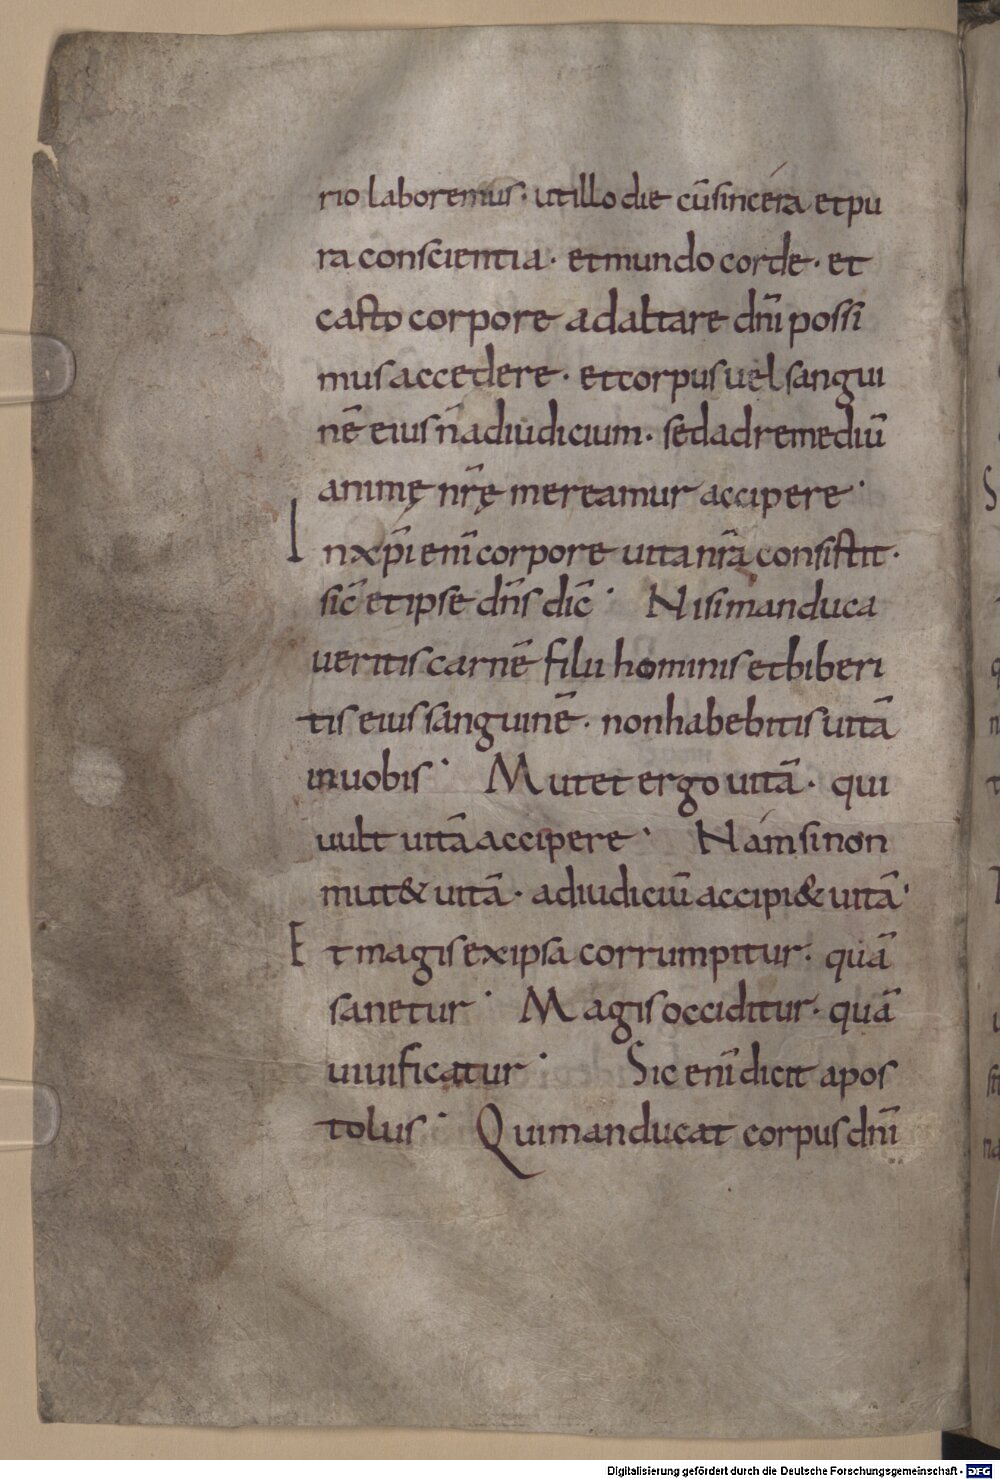 rio laboremus · ut illo die cū sincera et pu
ra conscientia · et mundo corde · et
casto corpore ad altare dn̄i possi
mus accedere · et corpus uel sangui
nē eius n̄ ad iudicium · sed ad remediū
animę nr̄ę mereamur accipere ·
In xp̄i enī corpore uita nr̄a consistit ·
sic̄ et ipse dn̄s dic̄ · Nisi manduca
ueritis carnē filii hominis et biberi
tis eius sanguinē · non habebitis uitā
in uobis · Mutet ergo uitā · qui
uult uitā accipere · Nam si non
mut& uitā · ad iudiciū accipi& uitā ·
Et magis ex ipsa corrumpitur · quā
sanetur · Magis occiditur · quā
uiuificatur · Sic enī dicit apos
tolus · Qui manducat corpus dn̄i
Digitalisierung gefördert durch die Deutsche Forschungsgemeinschaft - DFG